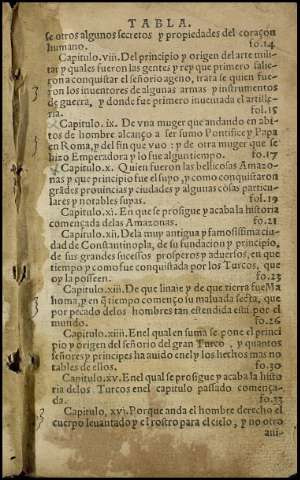 TABLA.
se otros algunos secretos y propiedades del coraçon
humano. fo.14
Capitulo.viii. Del principio y origen del arte mili-
tar y quales fueron las gentes y rey que primero salie-
ron a conquistar el señorio ageno, trata se quien fue-
ron los inuentores de algunas armas y instrumentos
de guerra, y donde fue primero inuentada el artille-
ria. fol.15
Capitulo. ix. De vna muger que andando en abi-
tos de hombre alcanço a ser sumo Pontifice y Papa
en Roma, y del fin que vuo : y de otra muger que se
hizo Emperadora y lo fue algun tiempo. fo.17
Capitulo.x. Quien fueron las bellicosas Amazo-
nas y que principio fue el suyo, y como conquistaron
grādes prouincias y ciudades y algunas cosas particu-
lares y notables suyas. fol.19
Capitulo.xi. En que se prosigue y acaba la historia
començada delas Amazonas. fo.21
Capitulo.xii. Dela muy antigua y famosissima ciu-
dad de Constantinopla, de su fundacion y principio,
de sus grandes sucessos prosperos y aduersos, en que
tiempo y como fue conquistada por los Turcos, que
oy la posseen. fo.23
Capitulo.xiii. De que linaje y de que tierra fue Ma
homa, y en q̄ tiempo començo su maluada secta, que
por pecado delos hombres tan estendida està por el
mundo. fo.26
Capitulo.xiiii. Enel qual en suma se pone el princi
pio y origen del señorio del gran Turco , y quantos
señores y principes ha auido enel y los hechos mas no
tables de ellos. fo.30
Capitulo.xv. Enel qual se prosigue y acaba la histo
ria delos Turcos enel capitulo passado comença-
da. fo.33
Capitulo. xvi. Porque anda el hombre derecho el
cuerpo leuantado y el rostro para el cielo, y no otro
ani-